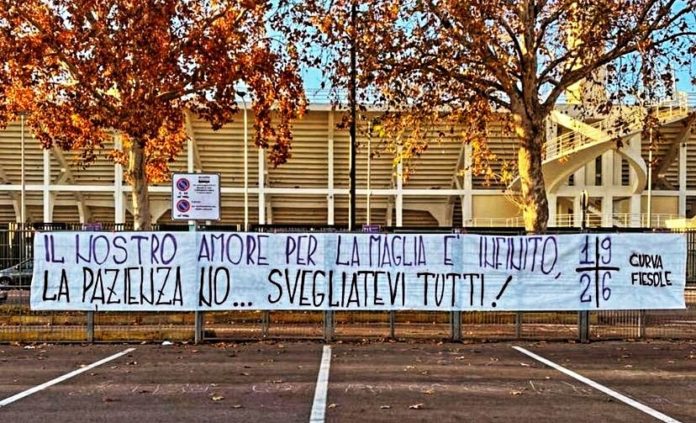 IL NOSTRO AMORE PER LA MAGLIA E' INFINITO,
LA PAZIENZA NO... SVEGLIATEVI TUTTI!
19
26
CURVA
FIESOLE